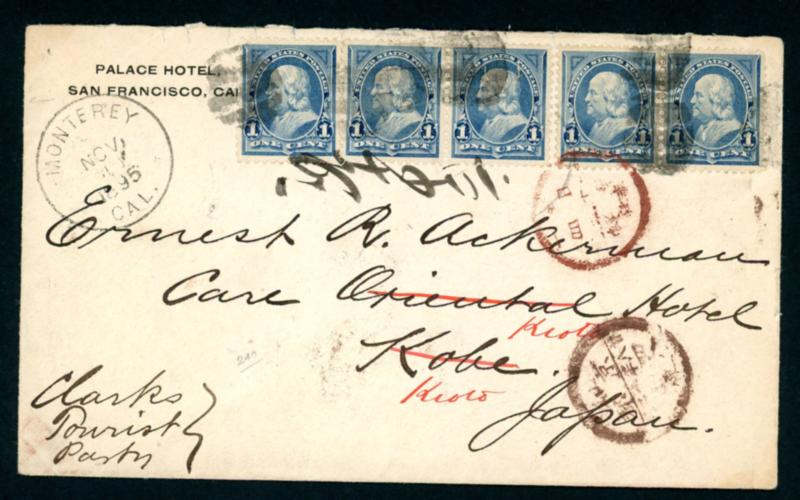 PALACE HOTEL,
SAN FRANCISCO, CAL
MONTEREY
NOV
1895
CAL.
UNITED STATES POSTAGE
1 1
ONE CENT
UNITED STATES POSTAGE
1 1
ONE CENT
UNITED STATES POSTAGE
1 1
ONE CENT
UNITED STATES POSTAGE
1 1
ONE CENT
UNITED STATES POSTAGE
1 1
ONE CENT
Ernest R. Ackerman
Care Oriental Hotel
Kioto
Kobe.
Kioto
Japan.
Clarks
Tourist
Party